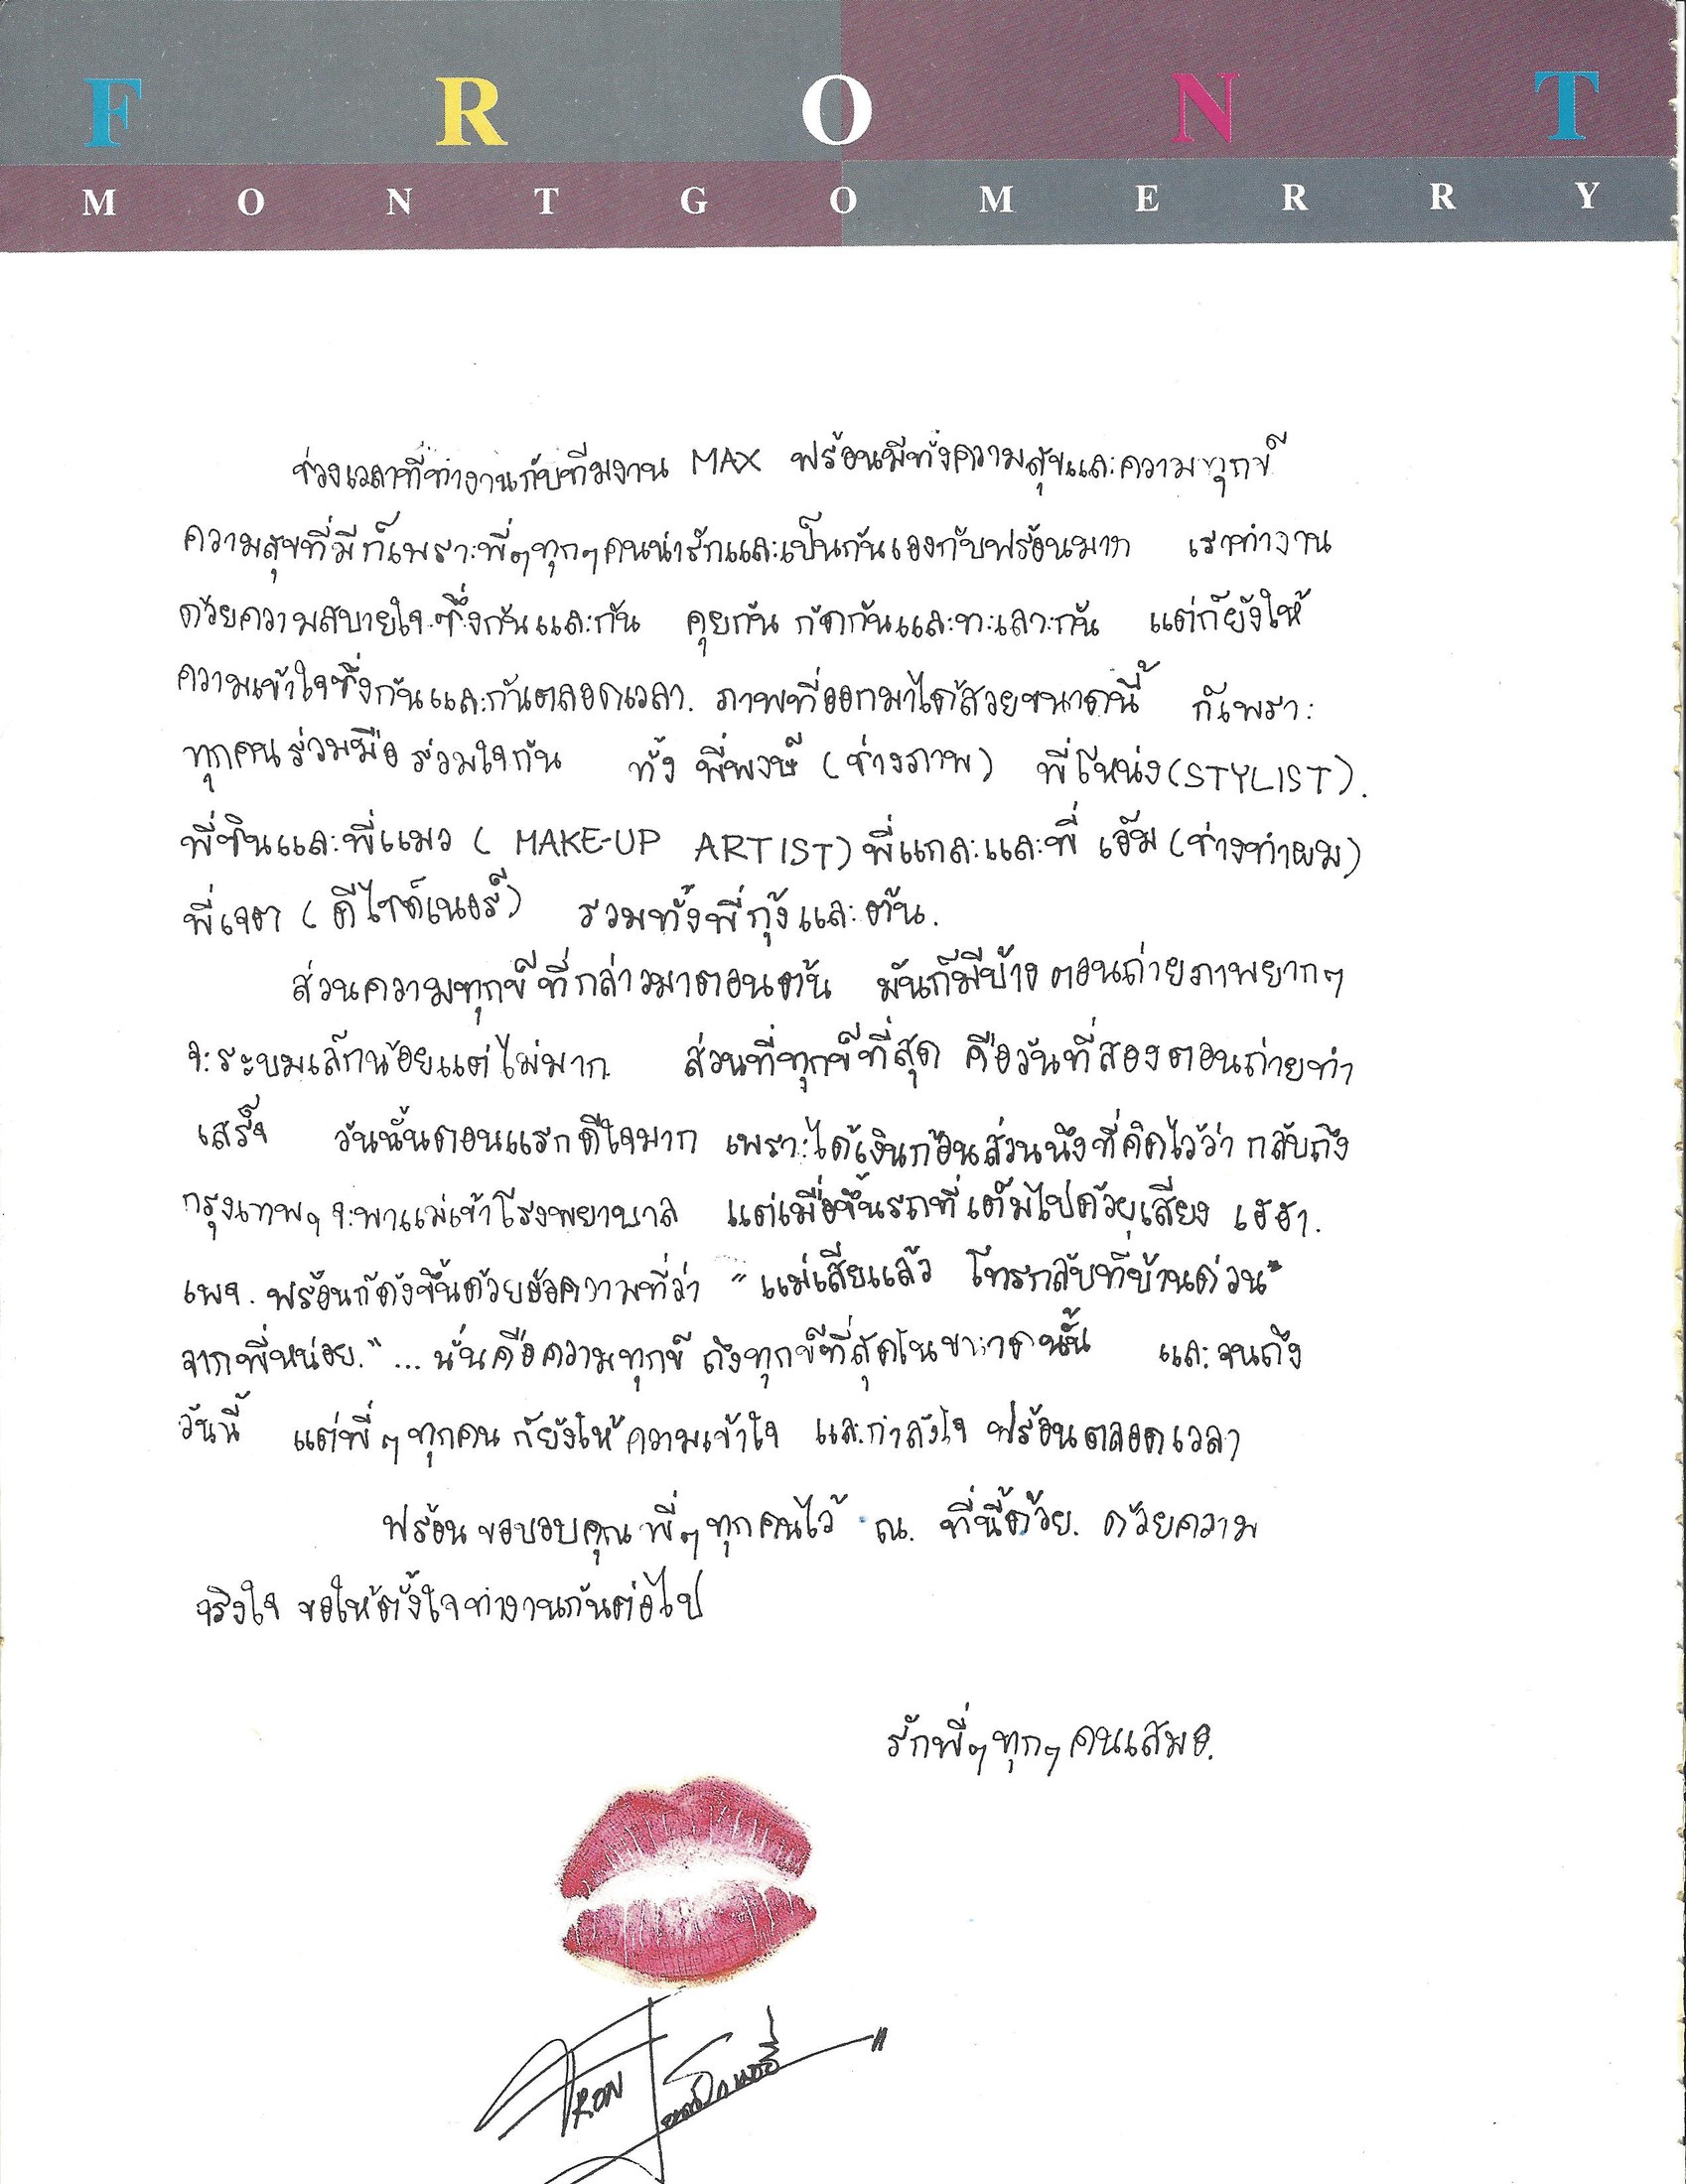 FRONT
MONTGOMERRY
ช่วงเวลาที่ทำงานกับทีมงาน MAX ฟร้อนมีทั้งความสุขและความทุกข์
ความสุขที่มีก็เพราะพี่ๆทุกๆคนน่ารักและเป็นกันเองกับฟร้อนมาก เราทำงาน
ด้วยความสบายใจซึ่งกันและกัน คุยกัน กัดกันและทะเลาะกัน แต่ก็ยังให้
ความเข้าใจซึ่งกันและกันตลอดเวลา. ภาพที่ออกมาได้สวยขนาดนี้ ก็เพราะ
ทุกคนร่วมมือ ร่วมใจกัน ทั้ง พี่พงษ์ (ช่างภาพ) พี่โหน่ง (STYLIST).
พี่ชินและพี่แมว ( MAKE-UP ARTIST) พี่แกละและพี่ เอ๋ม (ช่างทำผม)
พี่เจต (ดีไซด์เนอร์) รวมทั้งพี่กุ้งและต้น.
ส่วนความทุกข์ที่กล่าวมาตอนต้น มันก็มีบ้างตอนถ่ายภาพยากๆ
จะระบมเล็กน้อยแต่ไม่มาก ส่วนที่ทุกข์ที่สุด คือวันที่สองตอนถ่ายทำ
เสร็จ วันนั้นตอนแรกดีใจมาก เพราะได้เงินก้อนส่วนนึงที่คิดไว้ว่า กลับถึง
กรุงเทพฯ จะพาแม่เข้าโรงพยาบาล แต่เมื่อขึ้นรถที่เต็มไปด้วยเสียง เฮฮา.
เพจ. ฟร้อนก็ดังขึ้นด้วยข้อความที่ว่า "แม่เสียแล้ว โทรกลับที่บ้านด่วน"
จากพี่หน่อย." ... นั่นคือความทุกข์ ถึงทุกข์ที่สุดในขณะนั้น และจนถึง
วันนี้ แต่พี่ๆทุกคน ก็ยังให้ความเข้าใจ และกำลังใจ ฟร้อนตลอดเวลา
ฟร้อนขอบอบคุณพี่ๆทุกคนไว้ ณ. ที่นี้ด้วย. ด้วยความ
จริงใจ ขอให้ตั้งใจทำงานกันต่อไป
รักพี่ๆทุกๆคนเสมอ.